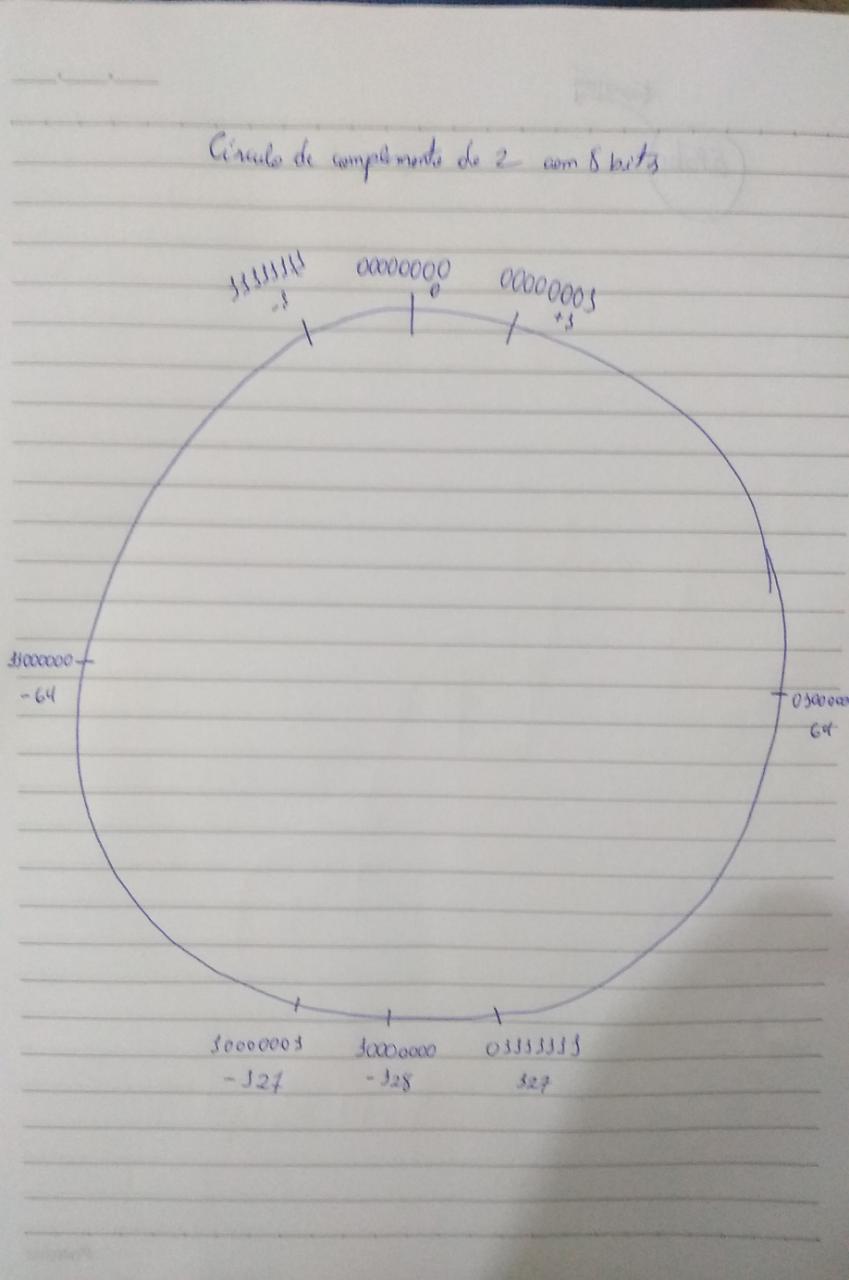 Círculo de complemento de 2 com 8 bits
11111111 00000000 00000001
-1 0 +1
11000000 0100000
-64 64
10000001 10000000 01111111
-127 -128 127